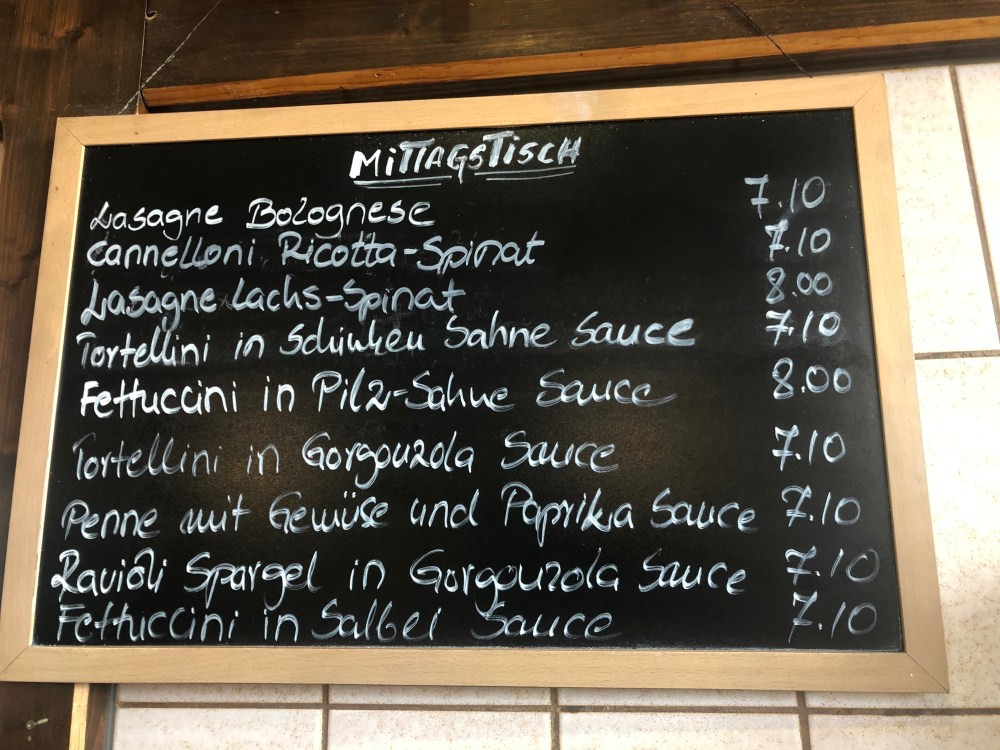 MITTAGSTISCH
Lasagne Bolognese 7.10
Cannelloni Ricotta-Spinat 7.10
Lasagne Lachs-Spinat 8.00
Tortellini in Schinken Sahne Sauce 7.10
Fettuccini in Pilz-Sahne Sauce 8.00
Tortellini in Gorgonzola Sauce 7.10
Penne mit Gemüse und Paprika Sauce 7.10
Ravioli Spargel in Gorgonzola Sauce 7.10
Fettuccini in Salbei Sauce 7.10